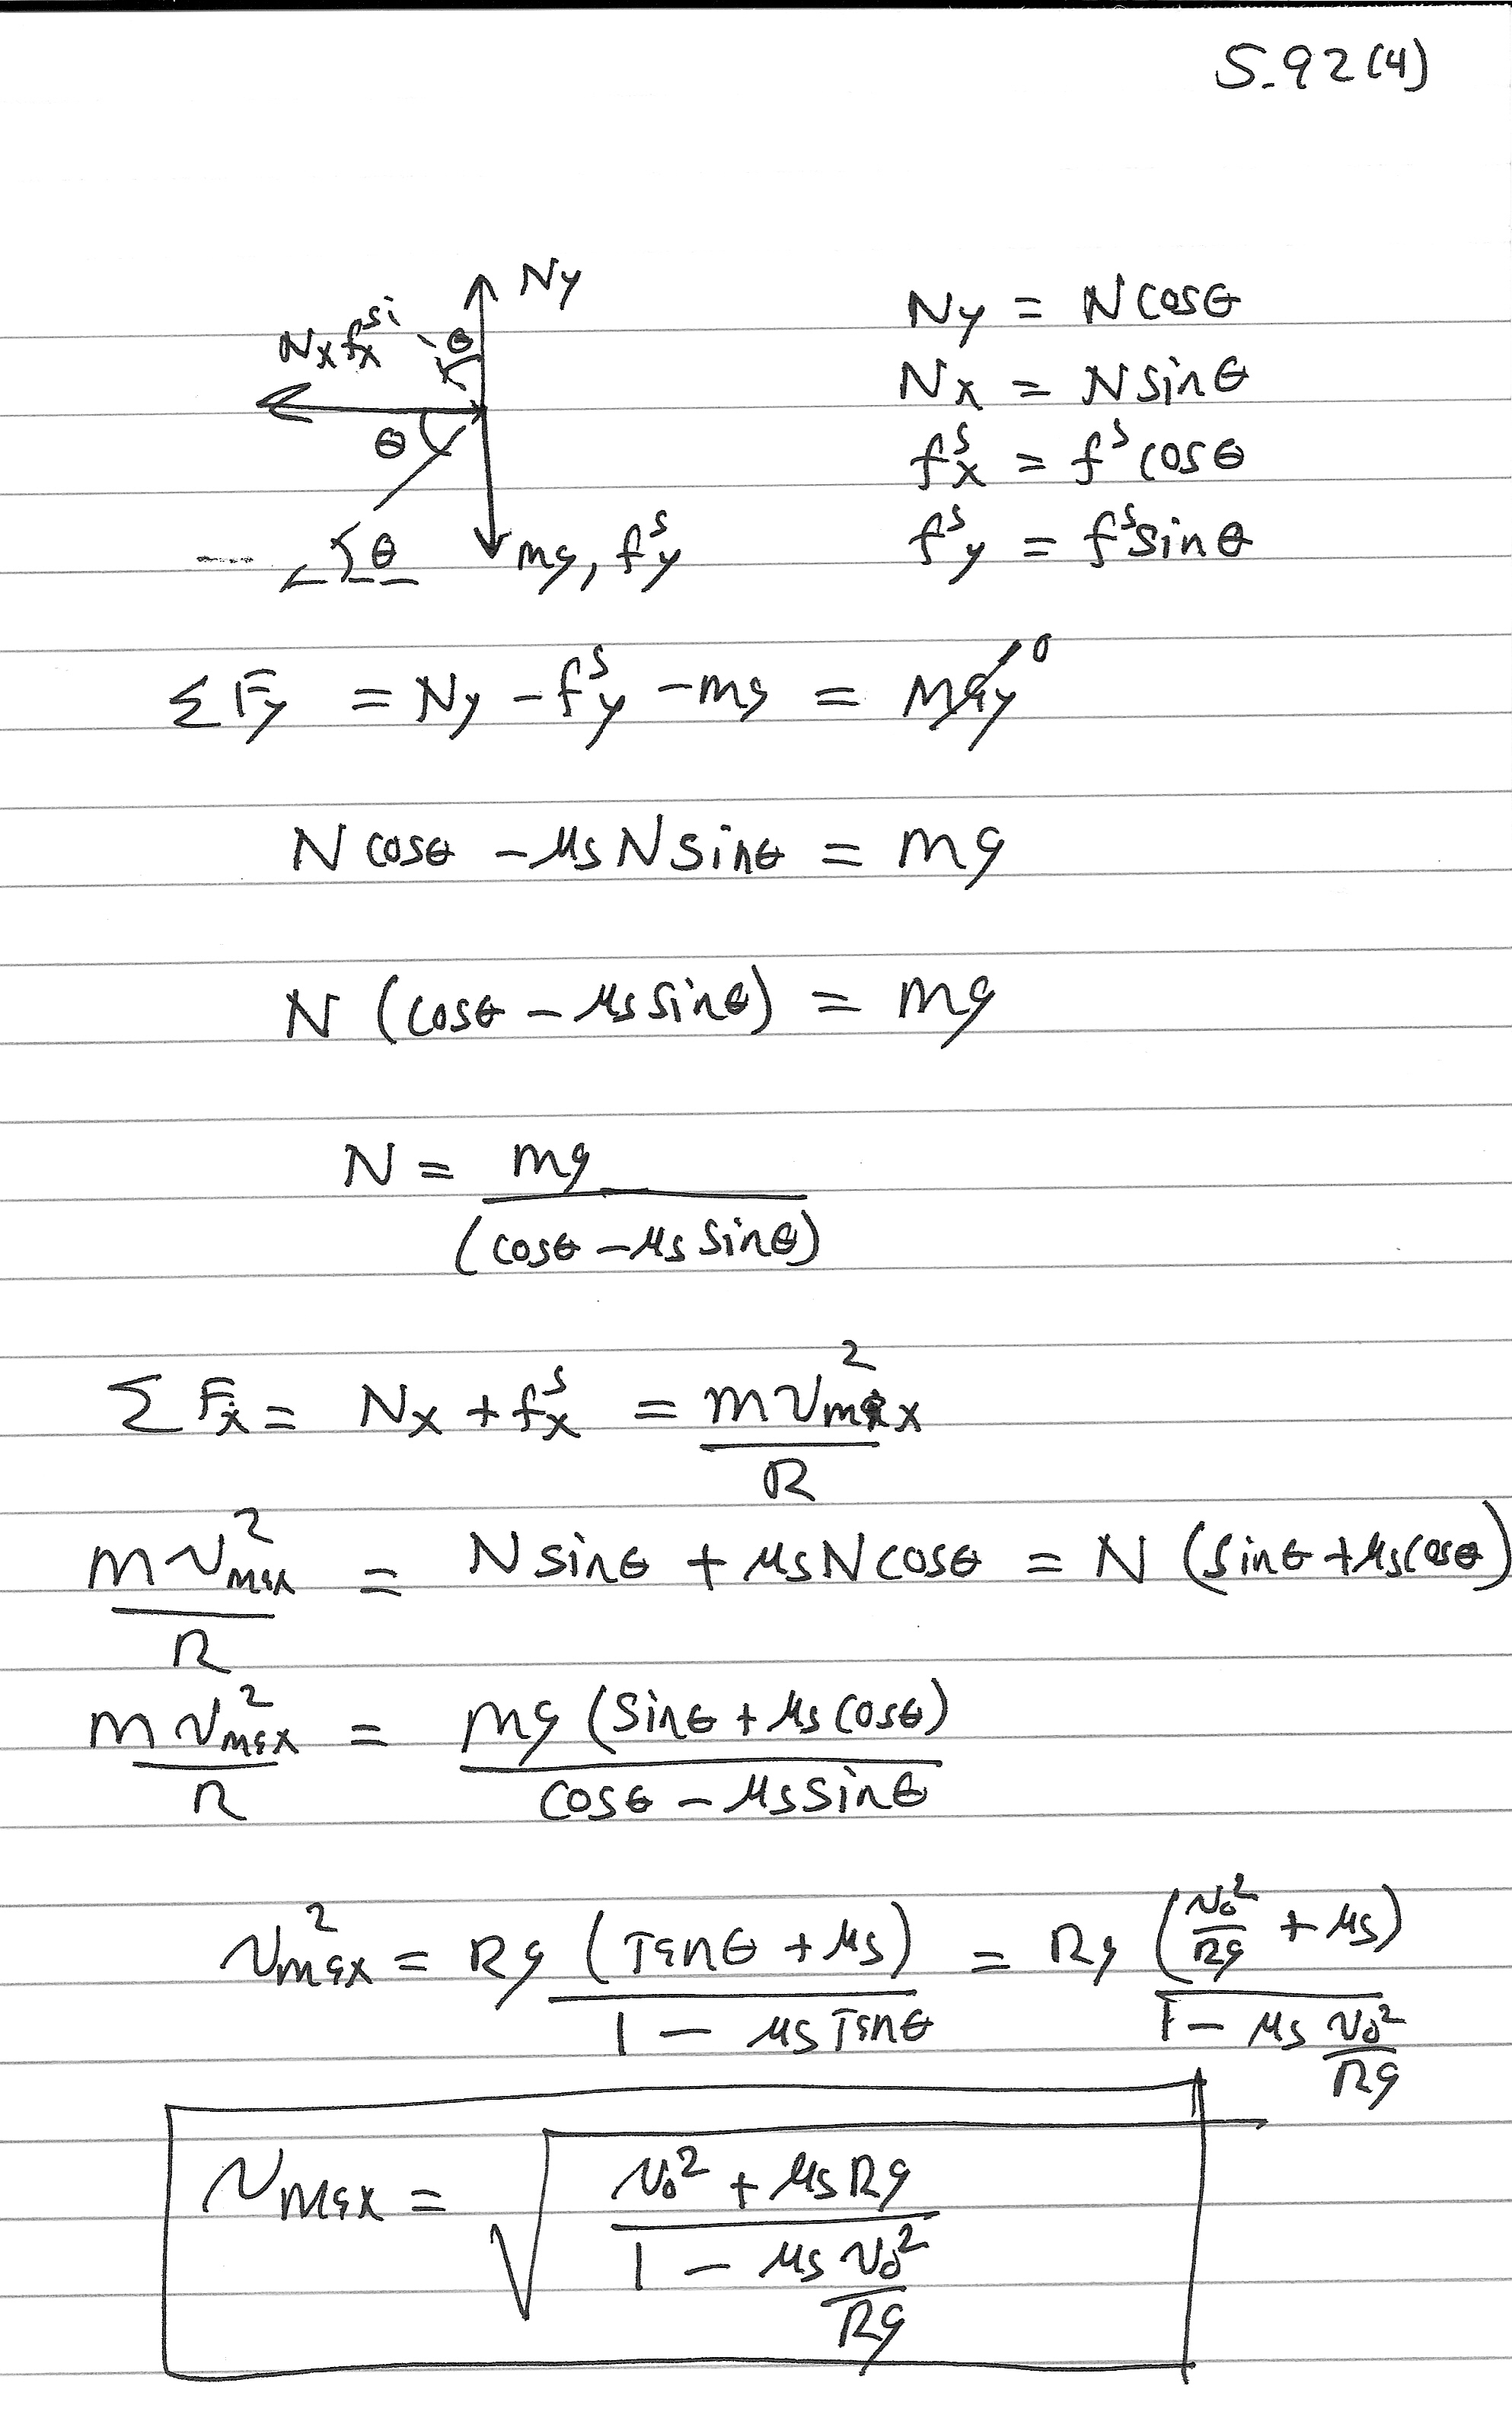 5.92(4)
Ny
Nx fx^s
θ
θ
θ
mg, f^s_y
Ny = N cosθ
Nx = N sinθ
f^s_x = f^s cosθ
f^s_y = f^s sinθ
ΣFy = Ny - f^s_y - mg = may 0
N cosθ - μs N sinθ = mg
N (cosθ - μs sinθ) = mg
N = mg / (cosθ - μs sinθ)
ΣFx = Nx + f^s_x = m v²max / R
m v²max / R = N sinθ + μs N cosθ = N (sinθ + μs cosθ)
m v²max / R = mg (sinθ + μs cosθ) / cosθ - μs sinθ
v²max = Rg (Tanθ + μs) / 1 - μs Tanθ = Rg (v0²/Rg + μs) / 1 - μs v0²/Rg
vmax = √ v0² + μs Rg / 1 - μs v0²/Rg